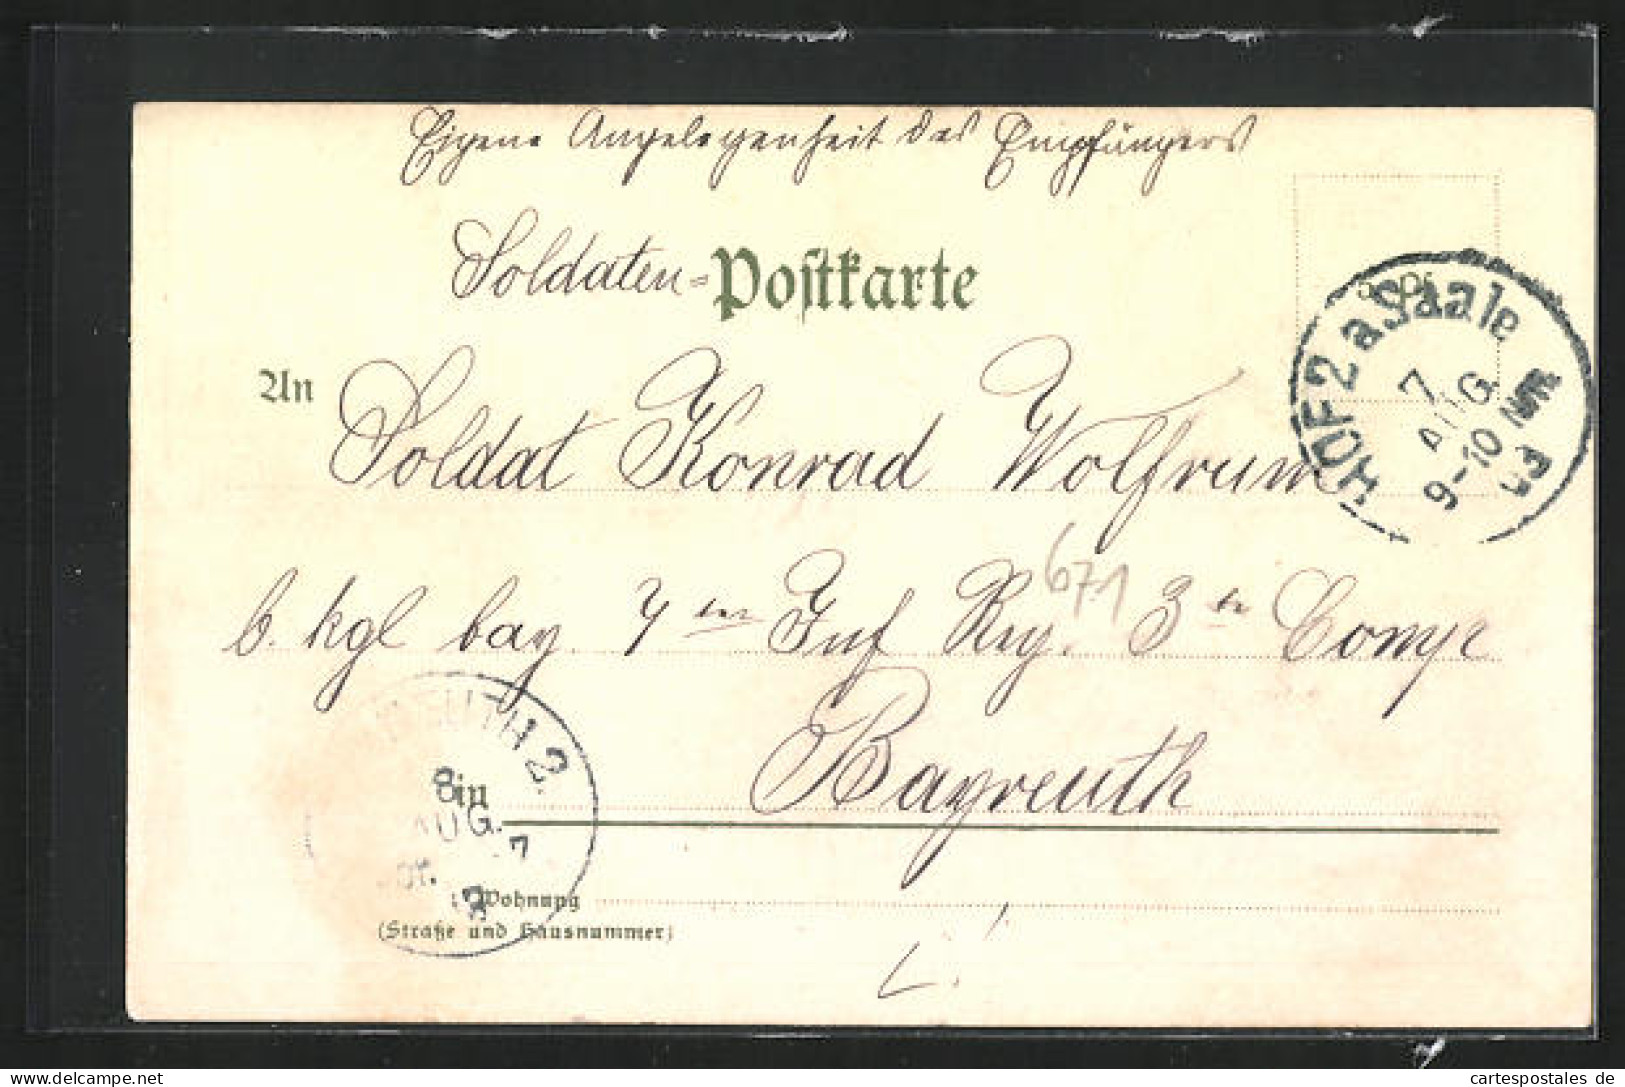 Eigene Angelegenheit des Empfängers
Soldaten=Postkarte
HOF 2 a Saale
7
AUG
9-10
03
An Soldat Konrad Wolfrum
b. kgl bay. 7ten Inf Reg. 3ten Comp
671
in Bayreuth
8
AUG.
7
Wohnung
(Straße und Hausnummer)
L.
cartespostales de